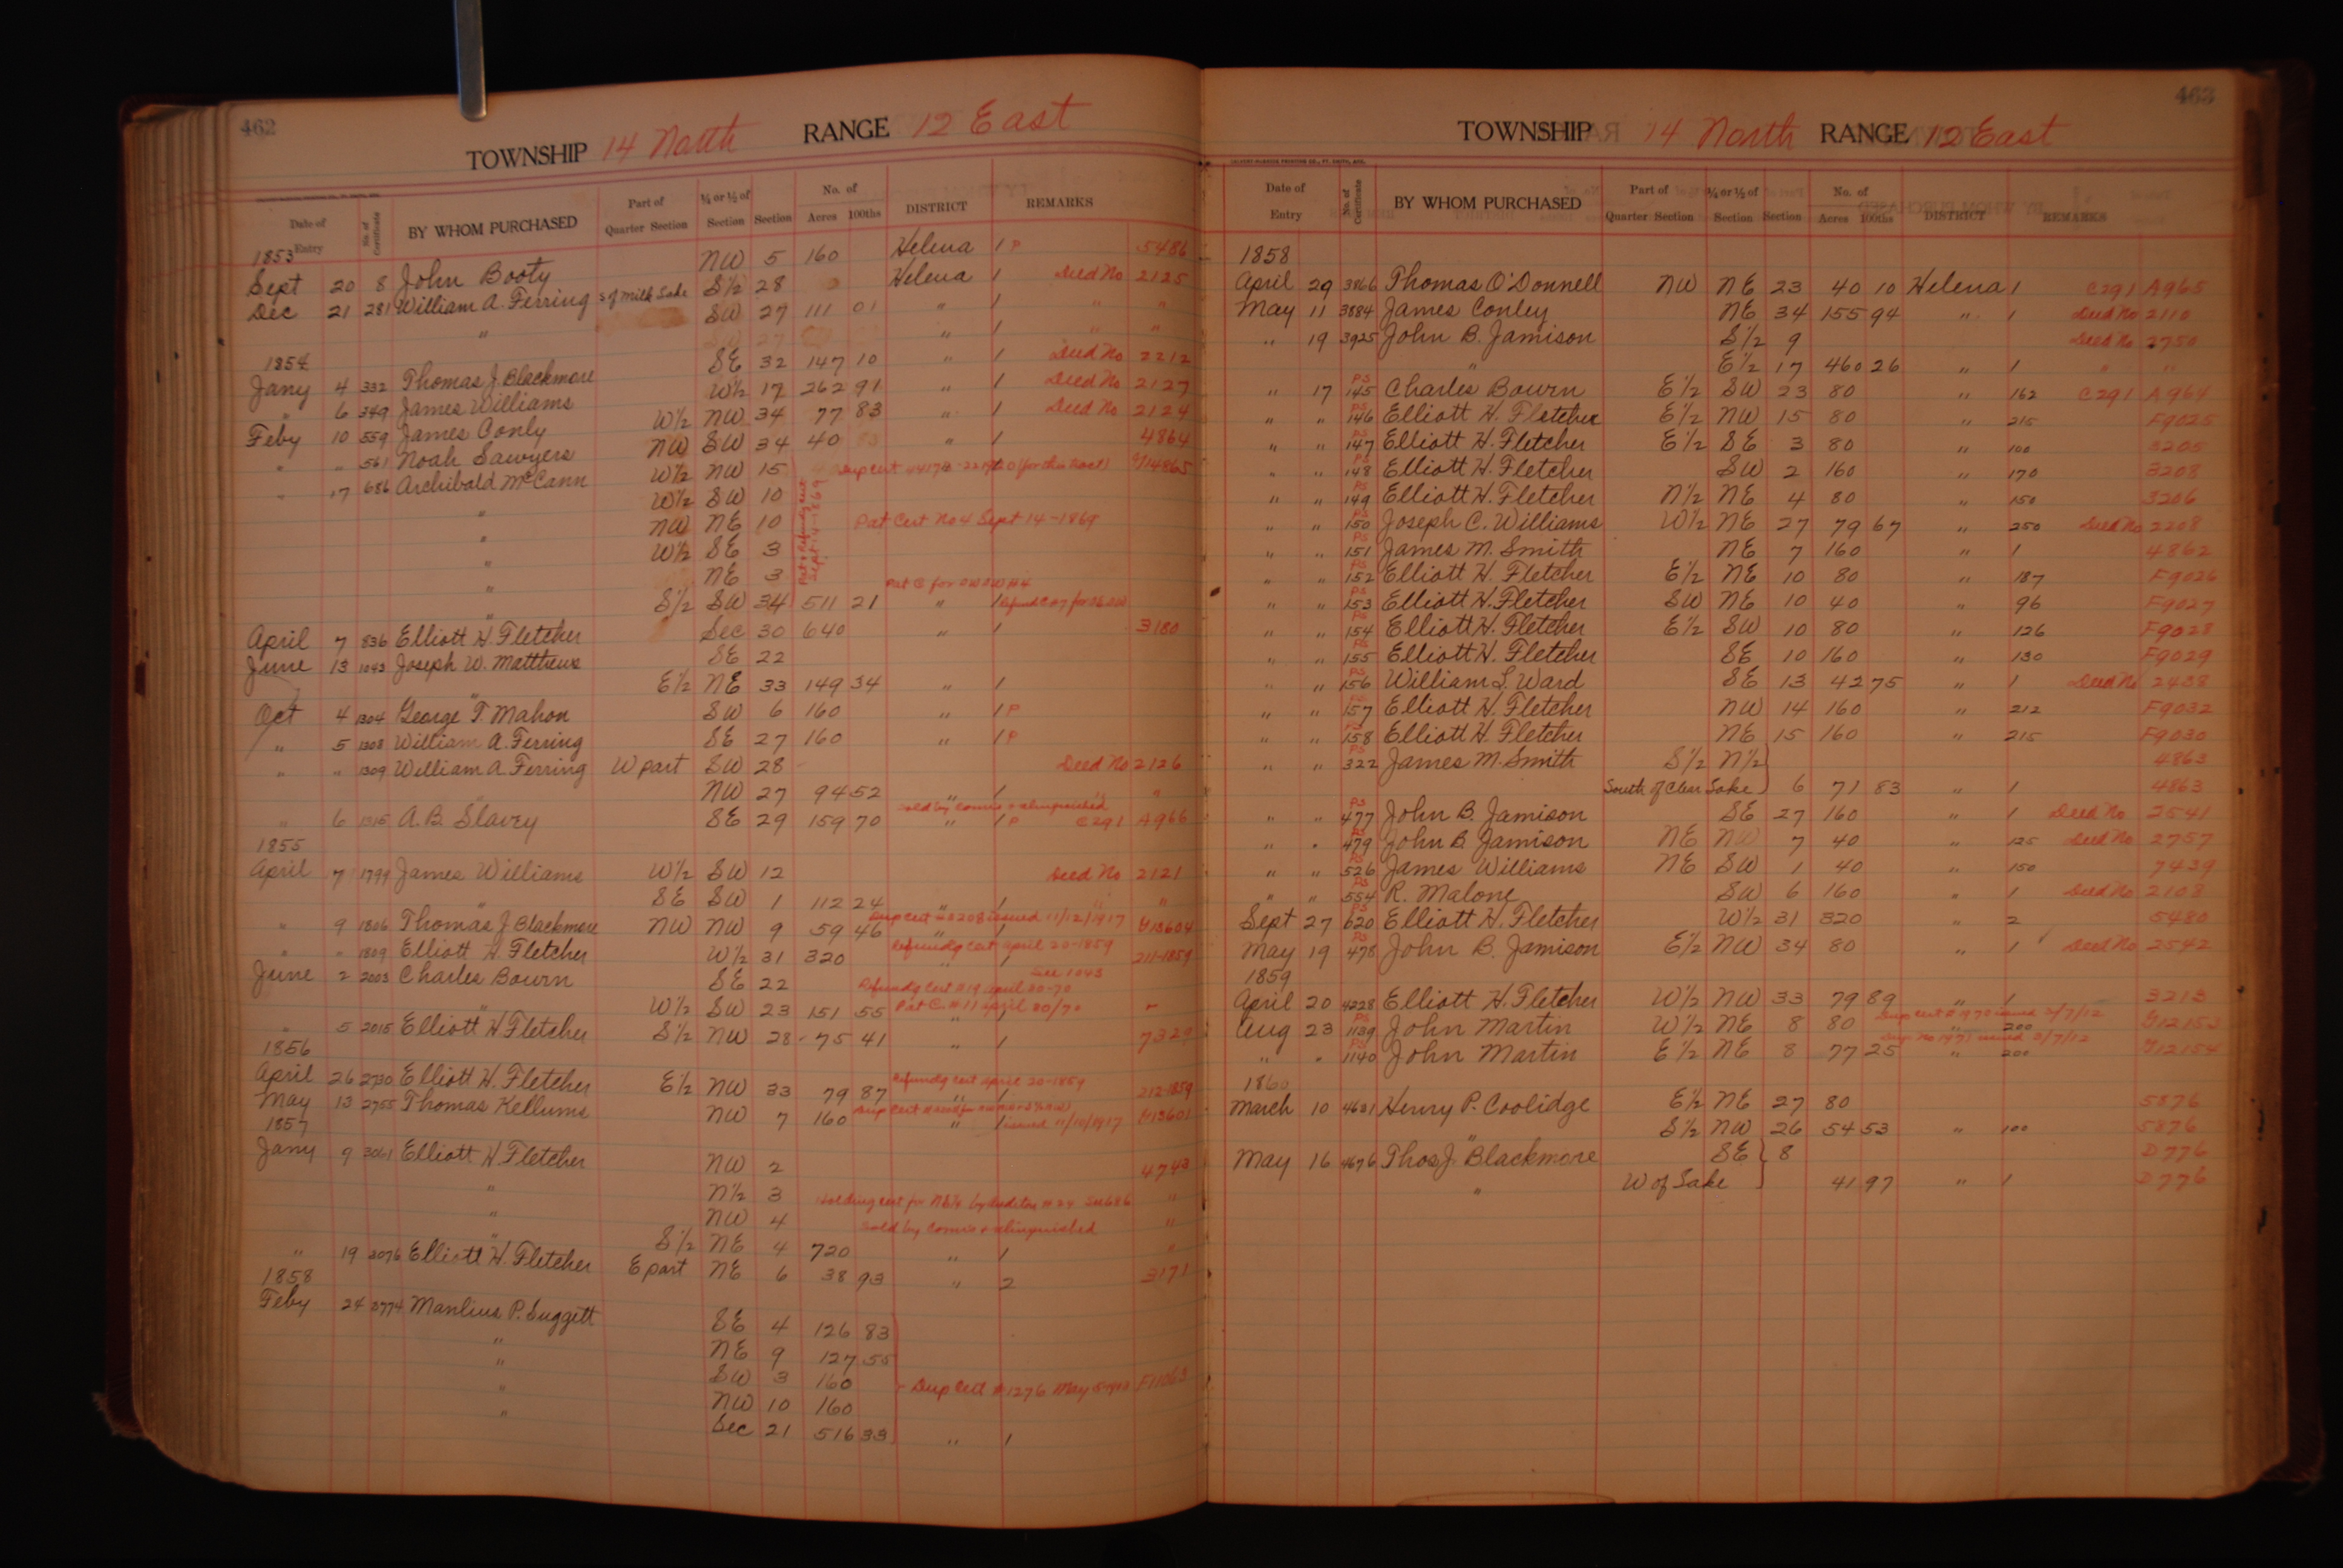 462
TOWNSHIP 14 North RANGE 12 East
Date of Entry No. of Certificate BY WHOM PURCHASED Part of Quarter Section ¼ or ½ of Section Section No. of Acres 100ths DISTRICT REMARKS
1853
Sept 20 8 John Booty NW 5 160 Helena 1 P 5486
Dec 21 281 William A. Ferring S of Milk Lake S½ 28 Helena 1 Deed No 2125
" SW 27 111 01 " 1 " "
" 1 " "
1854
Jany 4 332 Thomas J. Blackmore SE 32 147 10 " 1 Deed No 2212
" 6 349 James Williams W½ 17 262 91 " 1 Deed No 2127
Feby 10 559 James Conly W½ NW 34 77 83 " 1 Deed No 2124
" " 561 Noah Sawyers NW SW 34 40 " 1 4864
" 17 686 Archibald McCann W½ NW 15 (for this tract)
" W½ SW 10
" NW NE 10 Pat Cert No 4 Sept 14-1869
" W½ SE 3
" NE 3
" S½ SW 34 511 21 " 1
April 7 836 Elliott H. Fletcher Sec 30 640 " 1 3180
June 13 1043 Joseph W. Matthews SE 22
" E½ NE 33 149 34 " 1
Oct 4 1304 George T. Mahon SW 6 160 " 1 P
" 5 1308 William A. Ferring SE 27 160 " 1 P
" " 1309 William A. Ferring W part SW 28 Deed No 2126
NW 27 94 52 " 1 " "
sold by Comrs + relinquished
" 6 1315 A. B. Slavey SE 29 159 70 " 1 P C291 A966
1855
April 7 1799 James Williams W½ SW 12 Deed No 2121
" SE SW 1 112 24 " 1 " "
" 9 1806 Thomas J Blackmore NW NW 9 59 46 " 1 issued 11/12/1917
" " 1809 Elliott H. Fletcher W½ 31 320 Refundg Cert April 20-1859 " 1 211-1859
June 2 2003 Charles Bourn SE 22 Refundg Cert #19 April 20-70 See 1043
" W½ SW 23 151 55 Pat C #11 April 20/70 " 1
" 5 2015 Elliott H Fletcher S½ NW 28 75 41 " 1 7329
1856
April 26 2730 Elliott H. Fletcher E½ NW 33 79 87 Refundg Cert April 20-1859 " 1 212-1859
May 13 2755 Thomas Kellums NW 7 160 " 1 issued 11/10/1917
1857
Jany 9 3061 Elliott H Fletcher NW 2 4743
" N½ 3 "
" NW 4 sold by Comrs + relinquished "
" S½ NE 4 720 " 1 "
" 19 3076 Elliott H. Fletcher E part NE 6 38 93 " 2 3171
1858
Feby 24 3774 Manlius P. Suggett SE 4 126 83
" NE 9 127 55
" SW 3 160 Dup Cert #1276 May
" NW 10 160
" Sec 21 516 33 " 1
463
TOWNSHIP 14 North RANGE 12 East
Date of Entry No. of Certificate BY WHOM PURCHASED Part of Quarter Section ¼ or ½ of Section Section No. of Acres 100ths DISTRICT REMARKS
1858
April 29 3866 Thomas O'Donnell NW NE 23 40 10 Helena 1 C291 A965
May 11 3884 James Conley NE 34 155 94 " 1 Deed No 2110
" 19 3925 John B. Jamison S½ 9 Deed No 2750
" E½ 17 460 26 " 1 " "
" 17 PS 145 Charles Bourn E½ SW 23 80 " 162 C291 A964
" " PS 146 Elliott H. Fletcher E½ NW 15 80 " 215 F9025
" " PS 147 Elliott H. Fletcher E½ SE 3 80 " 100 3205
" " PS 148 Elliott H. Fletcher SW 2 160 " 170 3208
" " PS 149 Elliott H. Fletcher N½ NE 4 80 " 150 3206
" " PS 150 Joseph C. Williams W½ NE 27 79 67 " 250 Deed No 2208
" " PS 151 James M. Smith NE 7 160 " 1 4862
" " PS 152 Elliott H. Fletcher E½ NE 10 80 " 187 F9026
" " PS 153 Elliott H. Fletcher SW NE 10 40 " 96 F9027
" " PS 154 Elliott H. Fletcher E½ SW 10 80 " 126 F9028
" " PS 155 Elliott H. Fletcher SE 10 160 " 130 F9029
" " PS 156 William S. Ward SE 13 42 75 " 1 Deed No 2438
" " PS 157 Elliott H. Fletcher NW 14 160 " 212 F9032
" " PS 158 Elliott H. Fletcher NE 15 160 " 215 F9030
" " PS 322 James M. Smith S½ N½ 4863
South of Clear Lake 6 71 83 " 1 4863
" " PS 477 John B. Jamison SE 27 160 " 1 Deed No 2541
" " PS 479 John B Jamison NE NW 7 40 " 125 Deed No 2757
" " PS 526 James Williams NE SW 1 40 " 150 7439
" " PS 554 R. Malone SW 6 160 " 1 Deed No 2108
Sept 27 PS 620 Elliott H. Fletcher W½ 31 320 " 2 5480
May 19 PS 478 John B. Jamison E½ NW 34 80 " 1 Deed No 2542
1859
April 20 4228 Elliott H. Fletcher W½ NW 33 79 89 " 1 3213
Aug 23 PS 1139 John Martin W½ NE 8 80 Dup Cert #1970 issued 2/7/12 " 200 G12153
" " PS 1140 John Martin E½ NE 8 77 25 Dup No 1971 issued 2/7/12 " 200 G12154
1860
March 10 4631 Henry P. Coolidge E½ NE 27 80 5876
" S½ NW 26 54 53 " 100 5876
May 16 4676 Thos J. Blackmore SE 8 D776
" W of Lake 41 97 " 1 D776